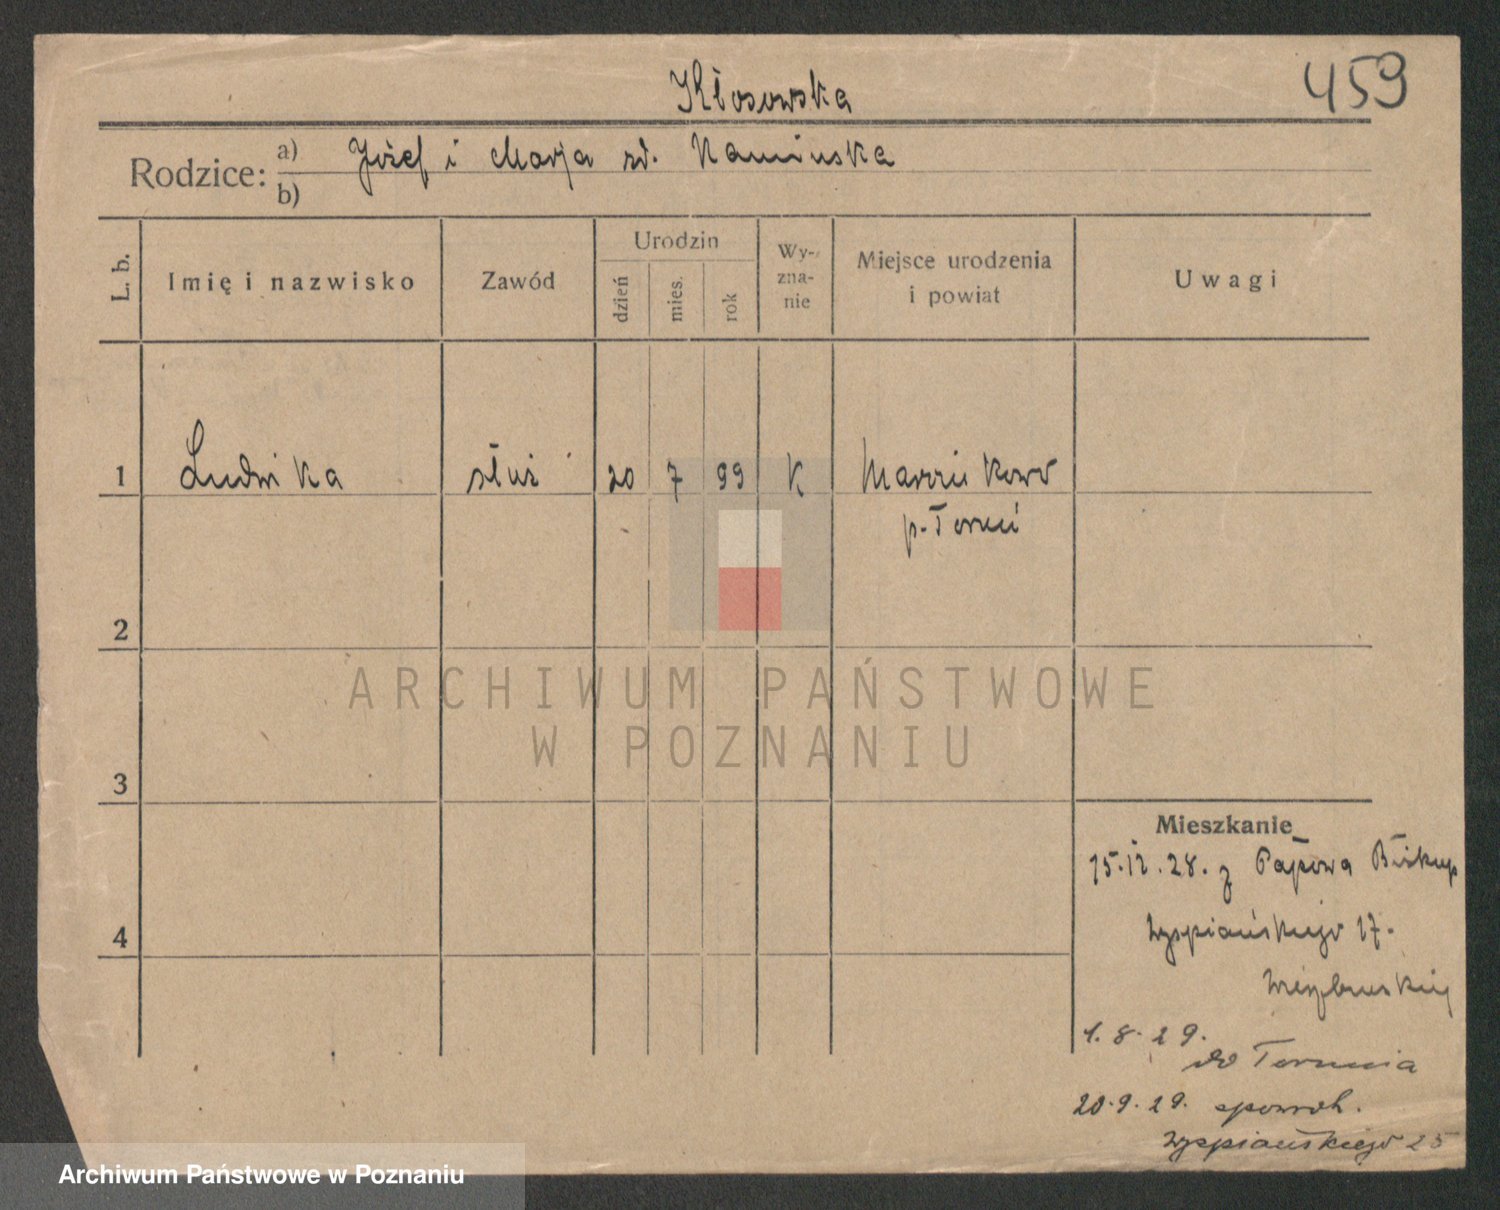 Kłosowska
459
Rodzice: a) Józef i Marja zd. Kamińska
b)
L. b.
Imię i nazwisko
Zawód
Urodzin
dzień
mies.
rok
Wy-
zna-
nie
Miejsce urodzenia
i powiat
Uwagi
1 Ludwika służ 20 7 99 K
p. Toruń
2
3
4
Mieszkanie
15.12.28. z Papowa Biskup
Wyspiańskiego 17.
1.8.29.
do Torunia
20.9.29. spowrot.
Wyspiańskiego 25
ARCHIWUM PAŃSTWOWE
W POZNANIU
Archiwum Państwowe w Poznaniu